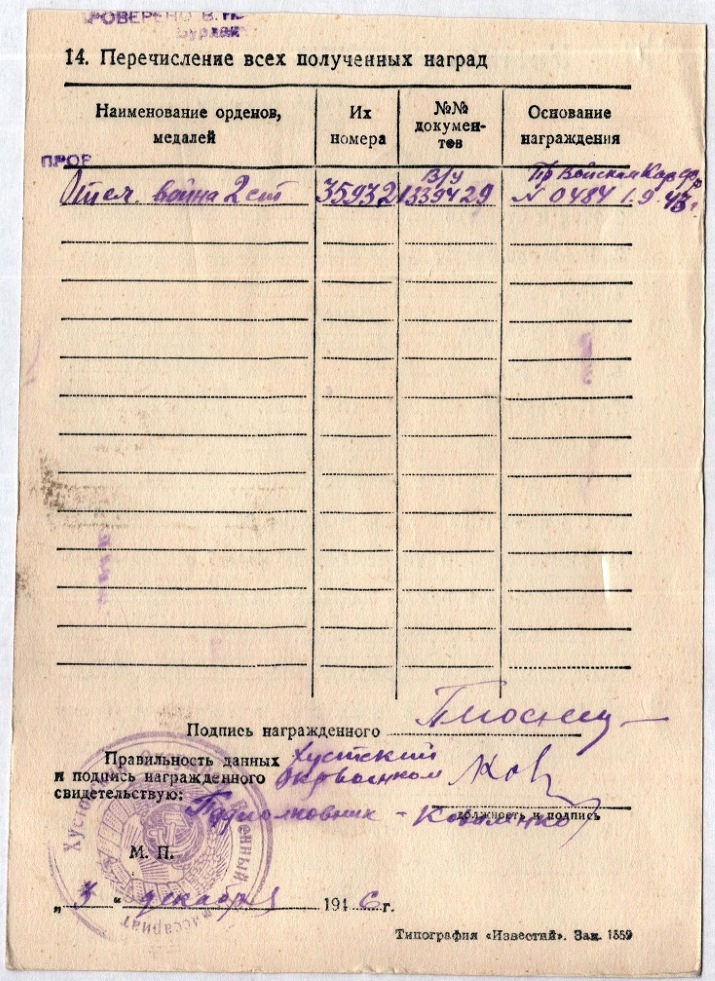 ПРОВЕРЕНО В.
Бурлак
14. Перечисление всех полученных наград
Наименование орденов, медалей
Их номера
№№ докумен-тов
Основание награждения
ПРОВ
Отеч. война 2 ст
35932
В/у 1339429
Пр Войскам Кар ф-р N 0484 1.9.43г.
Подпись награжденного
Правильность данных Хустский
и подпись награжденного Окрвоенком
свидетельствую:
Подполковник - Коваленко
должность и подпись
Хустский Окружной Военный Комиссариат
М. П.
„3“ декабря 1946г.
Типография «Известий». Зак. 1559